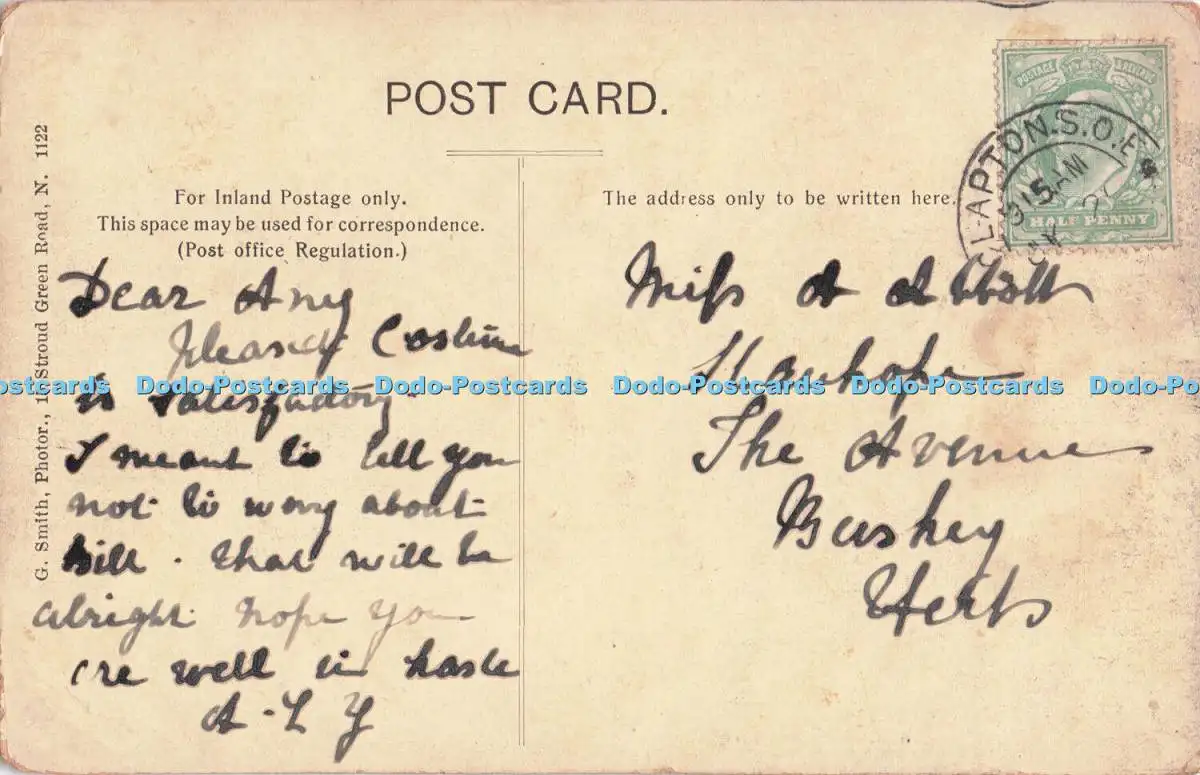 POST CARD.
For Inland Postage only.
This space may be used for correspondence.
(Post office Regulation.)
The address only to be written here.
G. Smith, Photor., Stroud Green Road, N. 1122
POSTAGE REVENUE
HALF PENNY
CLAPTON.S.O.
15 AM
Dear Amy
Costume
is satisfactory.
I meant to tell you
not to worry about
bill. that will be
alright hope you
are well in haste
A-L Y
Miss A Abbott
Stanhope
The Avenue
Bushey
Herts
Dodo-Postcards Dodo-Postcards Dodo-Postcards Dodo-Postcards